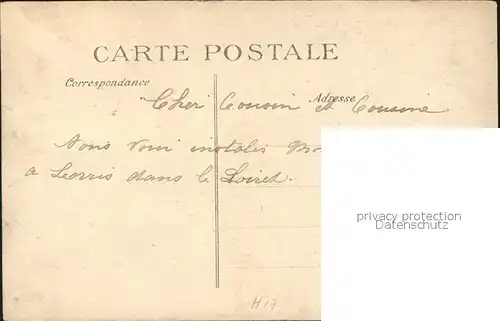 CARTE POSTALE
Correspondance
Adresse
Cher Cousin et Cousine
Nous
a Lorris dans le Loiret.
privacy protection
Datenschutz
H17